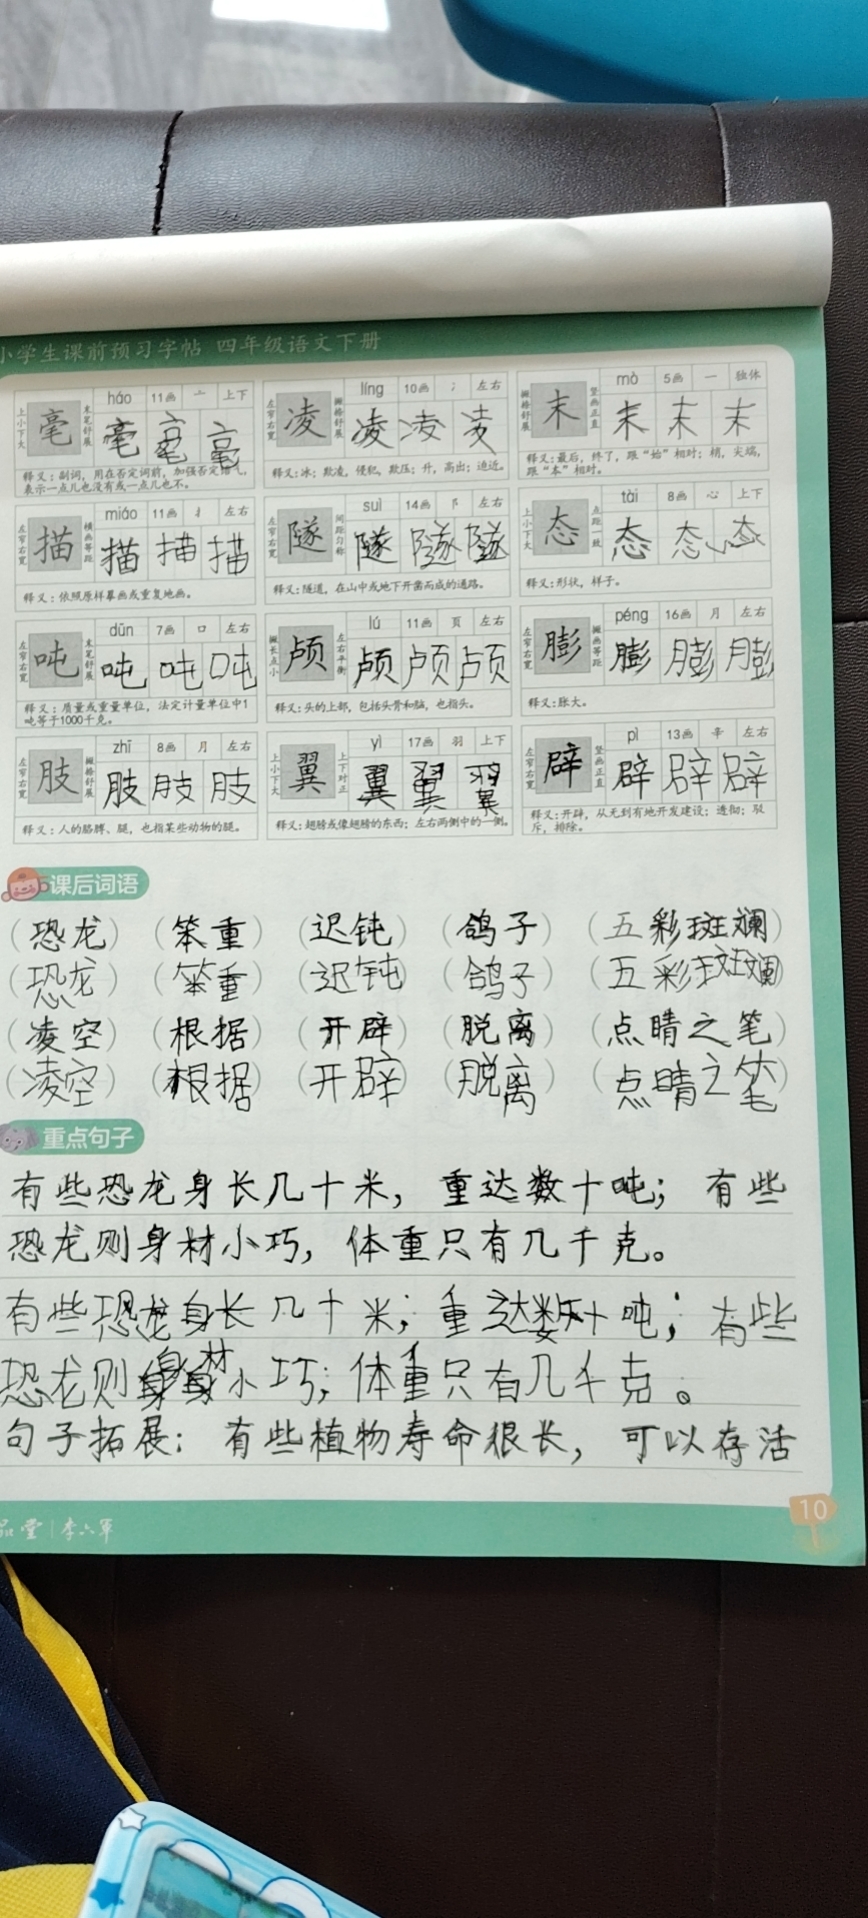 小学生课前预习字帖 四年级语文下册
háo 11画 亠 上下
上小下大 毫 末笔舒展 毫 毫 毫
释义：副词，用在否定词前，加强否定语气，
表示一点儿也没有或一点儿也不。
líng 10画 冫 左右
左窄右宽 凌 撇捺舒展 凌 凌 凌
释义：冰；欺凌，侵犯，欺压；升，高出；迫近。
mò 5画 一 独体
撇捺舒展 末 竖画正直 末 末 末
释义：最后，终了，跟“始”相对；梢，尖端，
跟“本”相对。
miáo 11画 扌 左右
左窄右宽 描 横画等距 描 描 描
释义：依照原样摹画或重复地画。
suì 14画 阝 左右
左窄右宽 隧 间距匀称 隧 隧 隧
释义：隧道，在山中或地下开凿而成的通路。
tài 8画 心 上下
上小下大 态 点距一致 态 态 态
释义：形状，样子。
dūn 7画 口 左右
左窄右宽 吨 末笔舒展 吨 吨 吨
释义：质量或重量单位，法定计量单位中1
吨等于1000千克。
lú 11画 页 左右
撇长点小 颅 左右平衡 颅 颅 颅
释义：头的上部，包括头骨和脑，也指头。
péng 16画 月 左右
左窄右宽 膨 撇画等距 膨 膨 膨
释义：胀大。
zhī 8画 月 左右
左窄右宽 肢 撇捺舒展 肢 肢 肢
释义：人的胳膊、腿，也指某些动物的腿。
yì 17画 羽 上下
上小下大 翼 上下对正 翼 翼 翼
释义：翅膀或像翅膀的东西；左右两侧中的一侧。
pì 13画 辛 左右
左窄右宽 辟 竖画正直 辟 辟 辟
释义：开辟，从无到有地开发建设；透彻；驳
斥，排除。
课后词语
（恐龙）（笨重）（迟钝）（鸽子）（五彩斑斓）
（恐龙）（笨重）（迟钝）（鸽子）（五彩斑斓）
（凌空）（根据）（开辟）（脱离）（点睛之笔）
（凌空）（根据）（开辟）（脱离）（点睛之笔）
重点句子
有些恐龙身长几十米，重达数十吨；有些
恐龙则身材小巧，体重只有几千克。
有些恐龙身长几十米；重达数十吨；有些
恐龙则身材小巧；体重只有几千克。
句子拓展：有些植物寿命很长，可以存活
品堂 | 李六军
10